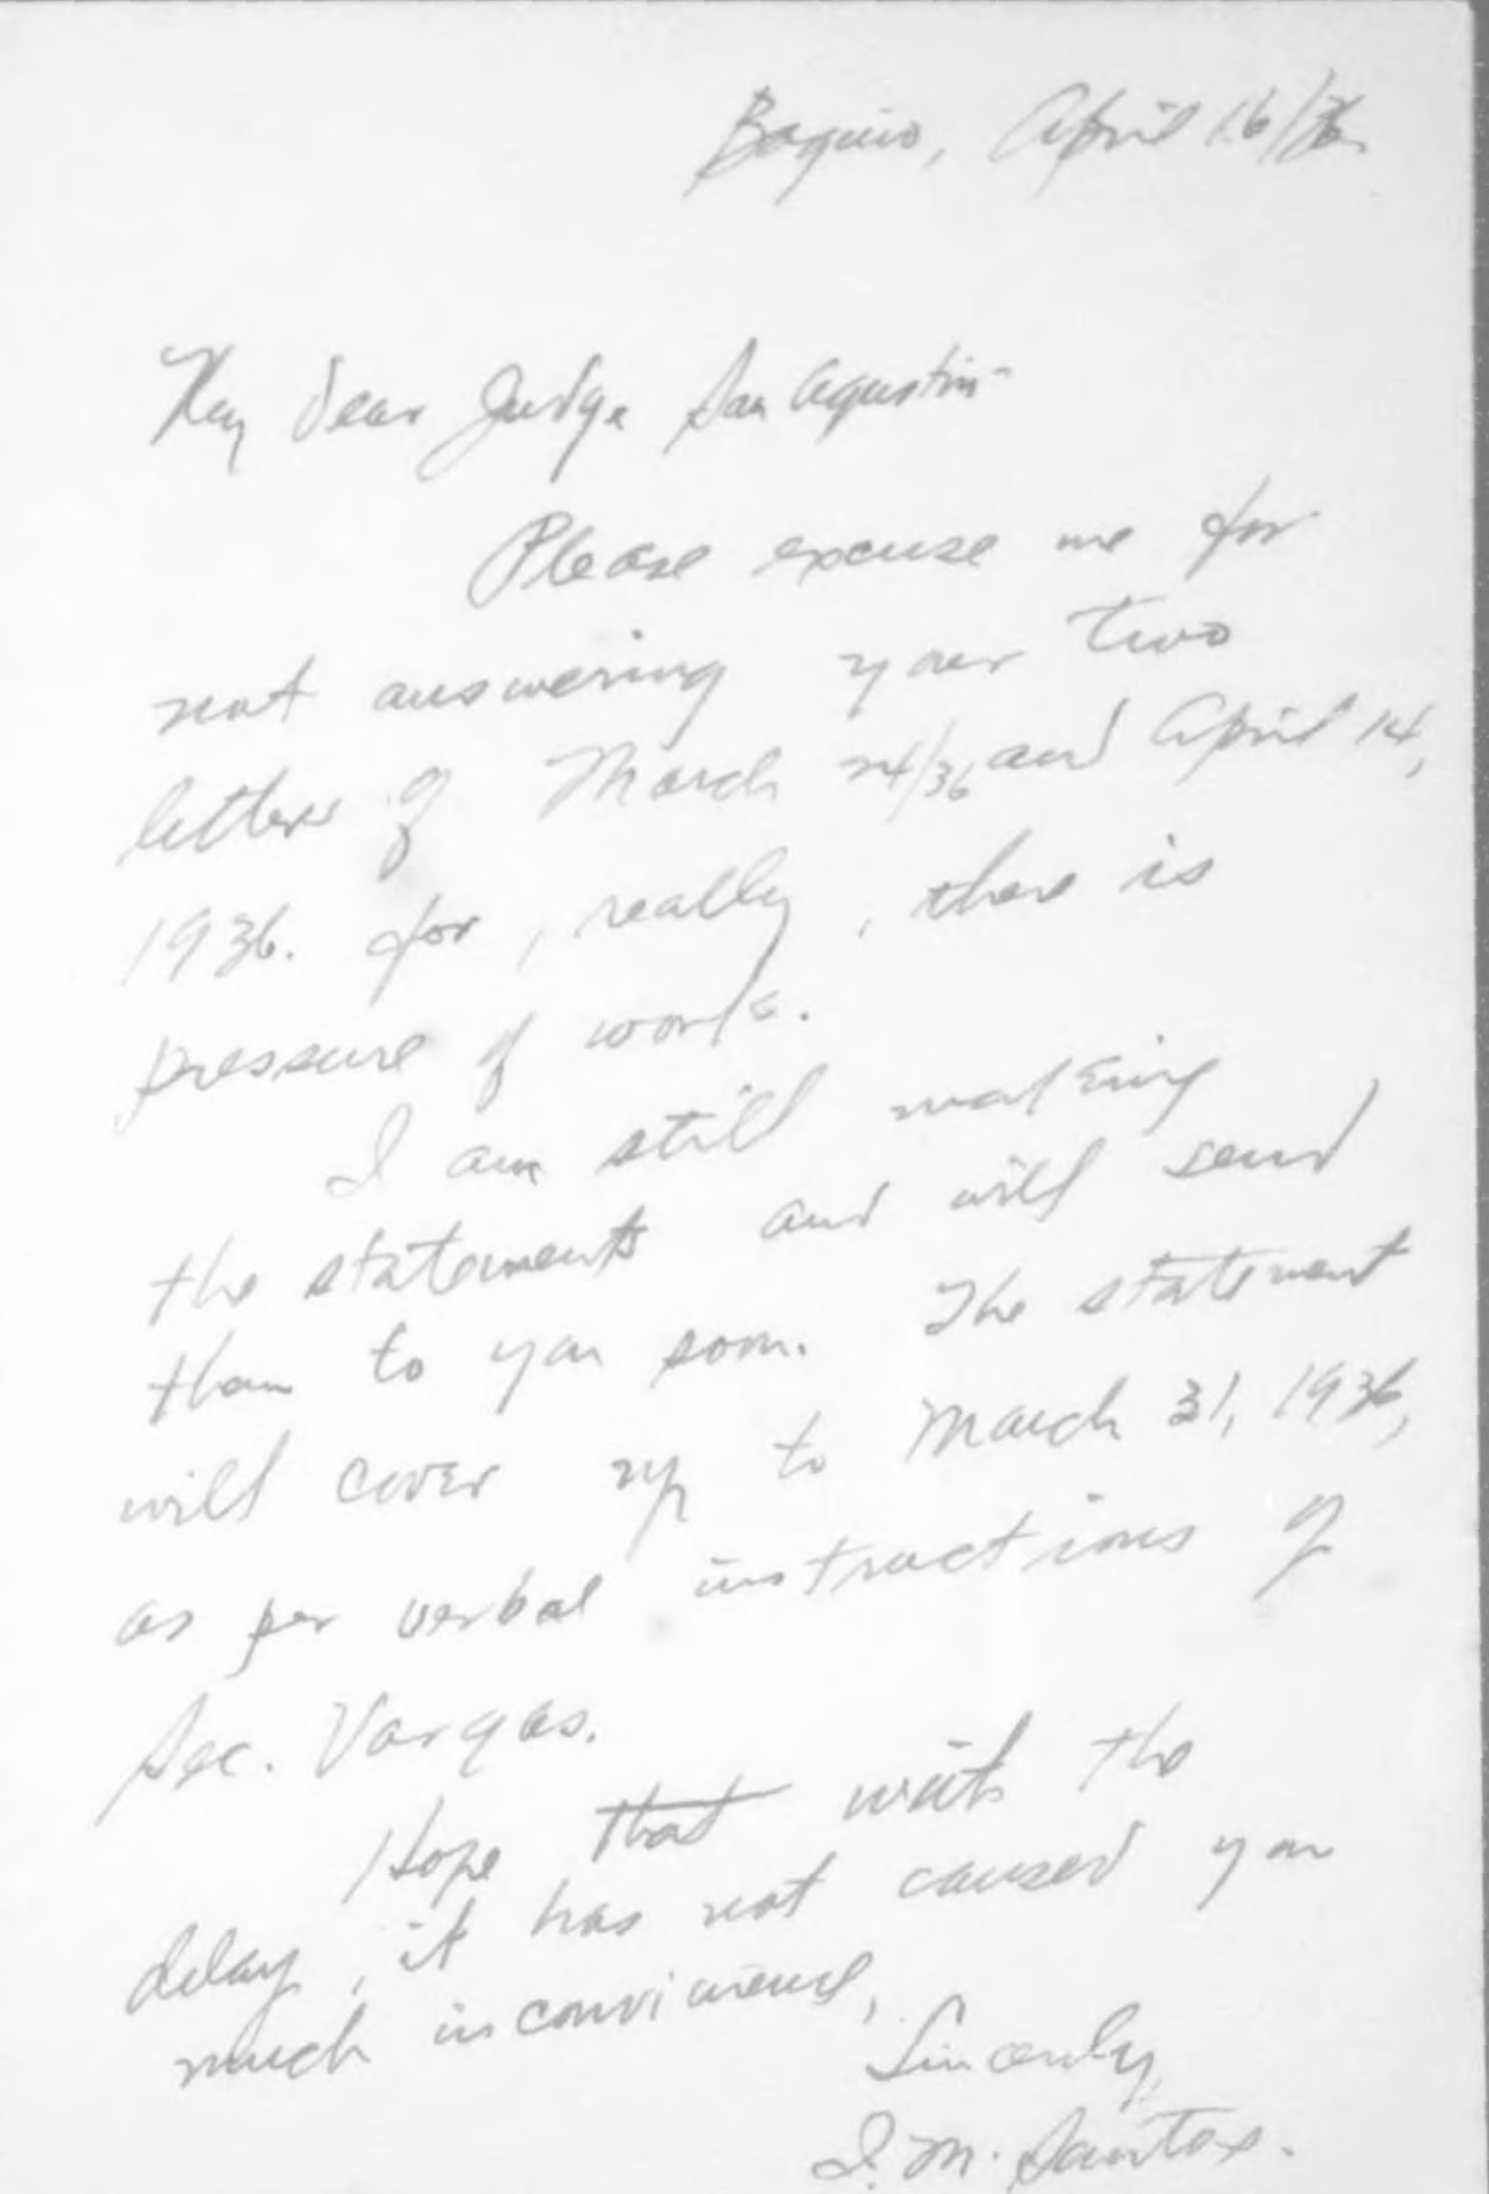 Baguio, April 16/36
My dear Judge San Agustin-
Please excuse me for
not answering your two
letters of March 24/36 and April 14,
1936. for, really, there is
pressure of work.
I am still making
the statements and will send
them to you soon. The statement
will cover up to March 31, 1936,
as per verbal instructions of
Sec. Vargas.
Hope that with the
delay, it has not caused you
much inconvinence,
Sincerely,
I. M. Santos.